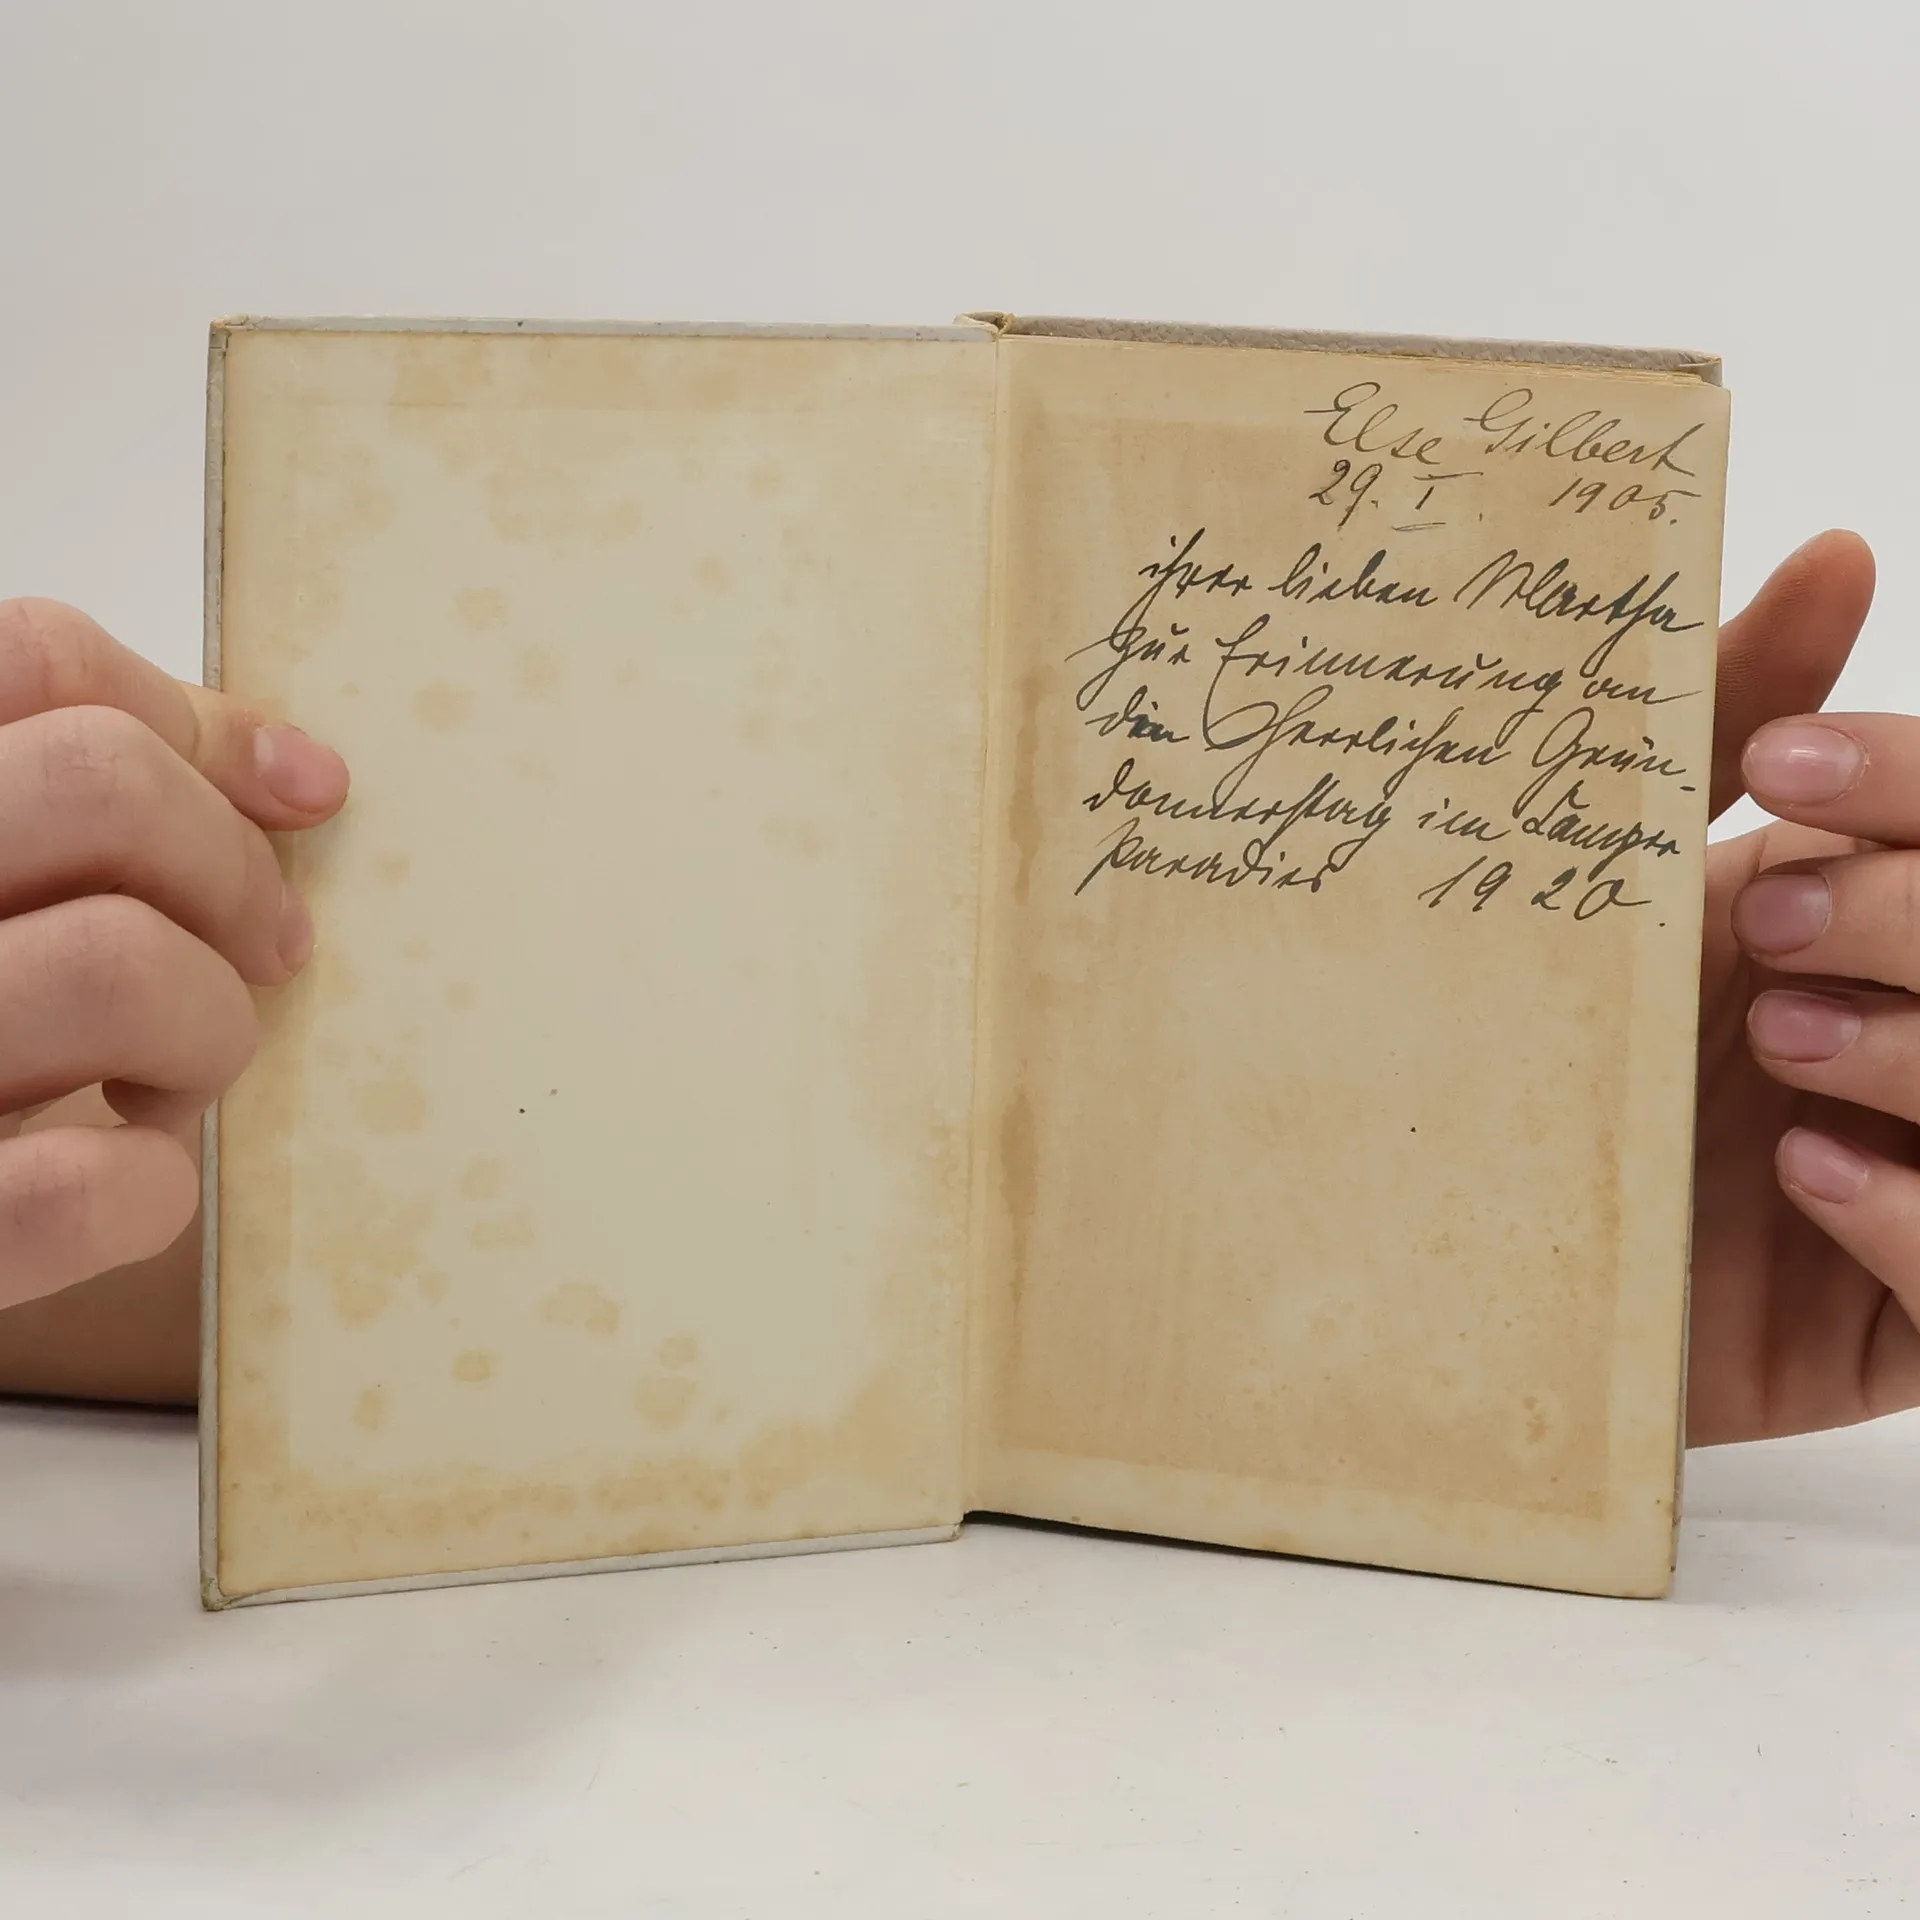 Else Gilbert
29. I. 1905.
ihrer lieben Martha
zur Erinnerung an
den Herrlichen Grün-
donnerstag im
Paradies 1920.